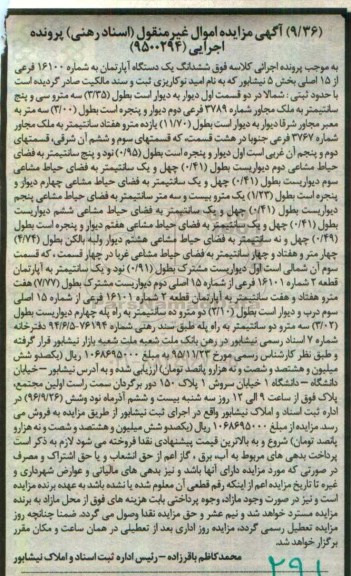 (۹/۳۶) آگهی مزایده اموال غیرمنقول (اسناد رهنی) پرونده
اجرایی (۹۵۰۰۲۹۴)
به موجب پرونده اجرائی کلاسه فوق ششدانگ یک دستگاه آپارتمان به شماره ۱۶۱۰۰ فرعی
از ۱۵ اصلی بخش ۵ نیشابور که به نام امید نوکاریزی ثبت و سند مالکیت صادر گردیده است
با حدود ثبتی: شمالا در دو قسمت اول دیوار به دیوار است بطول (۳/۳۵) سه مترو سی و پنج
سانتیمتر به ملک مجاور شماره ۳۷۸۹ فرعی دوم دیوار و پنجره است بطول (۳/۰۰) سه متر به
معبر مجاور شرقا دیوار به دیوار است بطول (۱۱/۷۰) یازده مترو هفتاد سانتیمتر به ملک مجاور
شماره ۳۷۶۷ فرعی جنوبا در هشت قسمت، که قسمتهای سوم و ششم آن شرقی، قسمتهای
دوم و پنجم آن غربی است اول دیوار و پنجره است بطول (۰/۹۵) نود و پنج سانتیمتر به فضای
حیاط مشاعی دوم دیواریست بطول (۰/۴۱) چهل و یک سانتیمتر به فضای حیاط مشاعی
سوم دیواریست بطول (۰/۴۱) چهل و یک سانتیمتر به فضای حیاط مشاعی چهارم دیوار و
پنجره است بطول (۱/۲۳) یک مترو بیست و سه متر سانتیمتر به فضای حیاط مشاعی پنجم
دیواریست بطول (۰/۴۱) چهل و یک سانتیمتر به فضای حیاط مشاعی ششم دیواریست
بطول (۰/۴۱) چهل و یک سانتیمتر به فضای حیاط مشاعی هفتم دیوار و پنجره است بطول
(۰/۴۹) چهل و نه سانتیمتر به فضای حیاط مشاعی هشتم دیوار ولبه بالکن بطول (۴/۷۴)
چهار متر و هفتاد و چهار سانتیمتر به فضای حیاط مشاعی غربا در چهار قسمت، که قسمت
سوم آن شمالی است اول دیواریست مشترک بطول (۰/۹۱) نود و یک سانتیمتر به آپارتمان
قطعه ۳ شماره ۱۶۱۰۱ فرعی از شماره ۱۵ اصلی دوم دیواریست مشترک بطول (۷/۷۷) هفت
مترو هفتاد و هفت سانتیمتر به آپارتمان قطعه ۲ شماره ۱۶۱۰۱ فرعی از شماره ۱۵ اصلی
سوم درب و دیوار است بطول (۲/۱۰) دو مترو ده سانتیمتر به راه پله چهارم دیواریست بطول
(۳/۰۲) سه مترو دو سانتیمتر به راه پله طبق سند رهنی شماره ۷۶۱۹۴-۹۴/۶/۵ دفترخانه
شماره ۷ اسناد رسمی نیشابور در رهن بانک ملت شعبه ملت شعبه بازار نیشابور قرار گرفته
و طبق نظر کارشناس رسمی مورخ ۹۵/۱۱/۲۳ به مبلغ ۱۰۶۸۶۹۵۰۰۰ ریال (یکصدو شش
میلیون و هشتصد و شصت و نه هزارو پانصد تومان) ارزیابی شده و به آدرس نیشابور - خیابان
دانشگاه - دانشگاه ۱ خیابان سروش ۱ پلاک ۱۵۰ دور برگردان سمت راست اولین مجتمع،
پلاک فوق از ساعت ۹ الی ۱۲ روز سه شنبه بیست و ششم آذرماه نود وشش (۹۶/۹/۲۶) در
اداره ثبت اسناد و املاک نیشابور واقع در اجرای ثبت نیشابور از طریق مزایده به فروش می
رسد. مزایده از مبلغ ۱۰۶۸۶۹۵۰۰۰ ریال (یکصدو شش میلیون و هشتصد و شصت و نه هزارو
پانصد تومان) شروع و به بالاترین قیمت پیشنهادی نقدا فروخته می شود لازم به ذکر است
پرداخت بدهی های مربوط به آب، برق، گاز اعم از حق انشعاب و یا حق اشتراک و مصرف
در صورتی که مورد مزایده دارای آنها باشد و نیز بدهی های مالیاتی و عوارض شهرداری و
غیره تا تاریخ مزایده اعم از اینکه رقم قطعی آن معلوم شده یا نشده باشد به عهده برنده مزایده
است و نیز در صورت وجود مازاد، وجوه پرداختی بابت هزینه های فوق از محل مازاد به برنده
مزایده مسترد خواهد شد و نیم عشر و حق مزایده نقدا وصول می گردد. ضمنا چنانچه روز
مزایده تعطیل رسمی گردد، مزایده روز اداری بعد از تعطیلی در همان ساعت و مکان مقرر
برگزار خواهد شد.
محمدکاظم باقرزاده - رئیس اداره ثبت اسناد و املاک نیشابور
۲۹۱